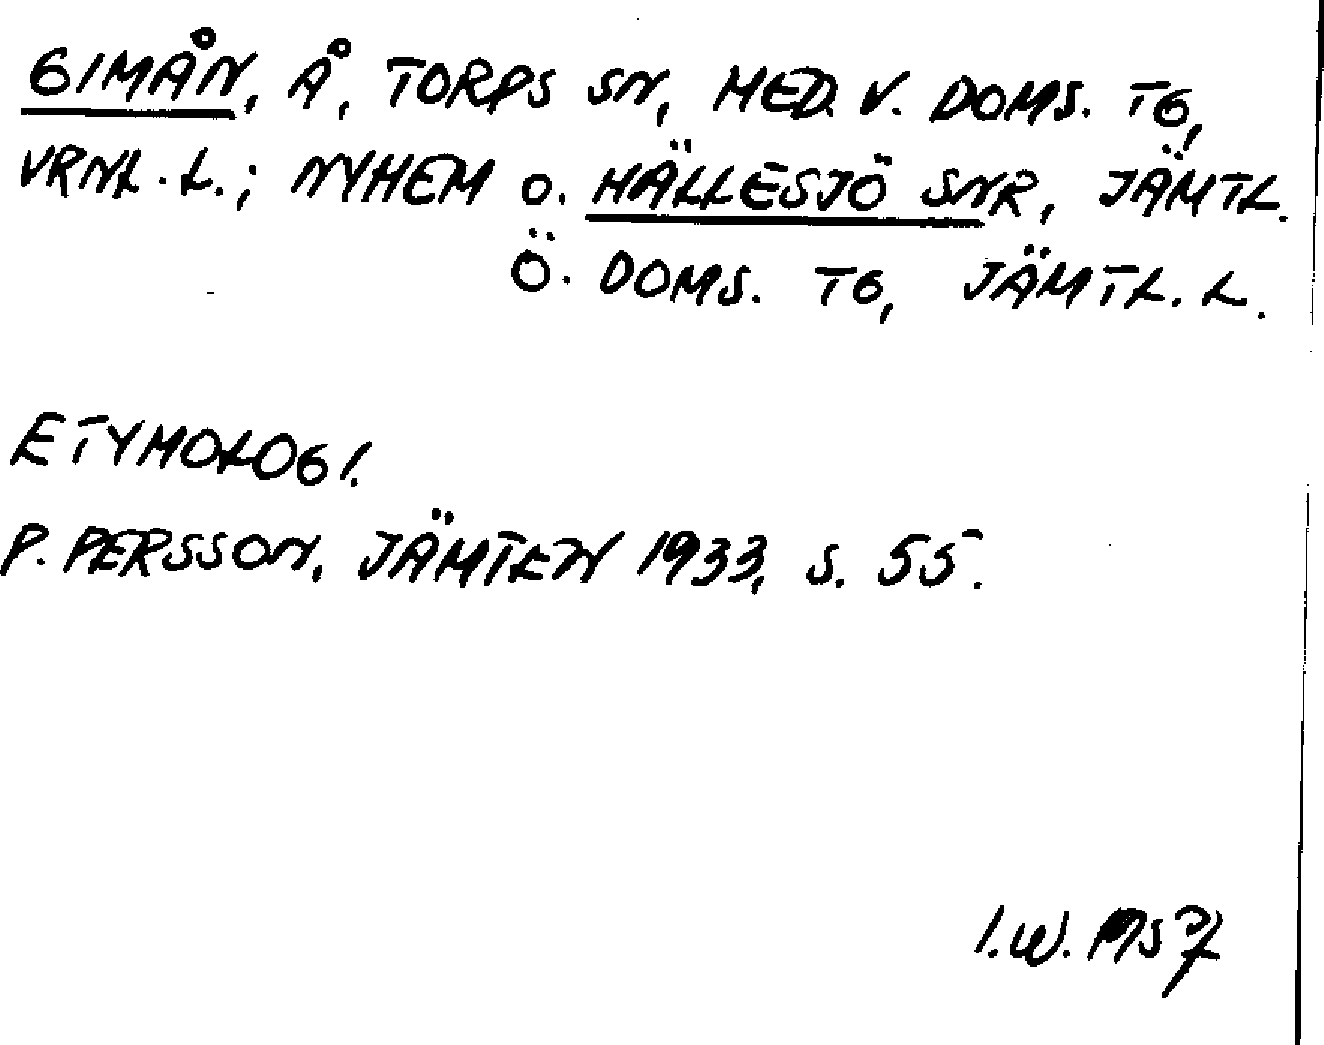 GIMÅN, Å, TORPS SN, MED. V. DOMS. TG,
VRNL. L.; NYHEM O. HÄLLESJÖ SNR, JÄMTL.
Ö. DOMS. TG, JÄMTL. L.
ETYMOLOGI.
P. PERSSON, JÄMTEN 1933, S. 55.
I.W. 1957